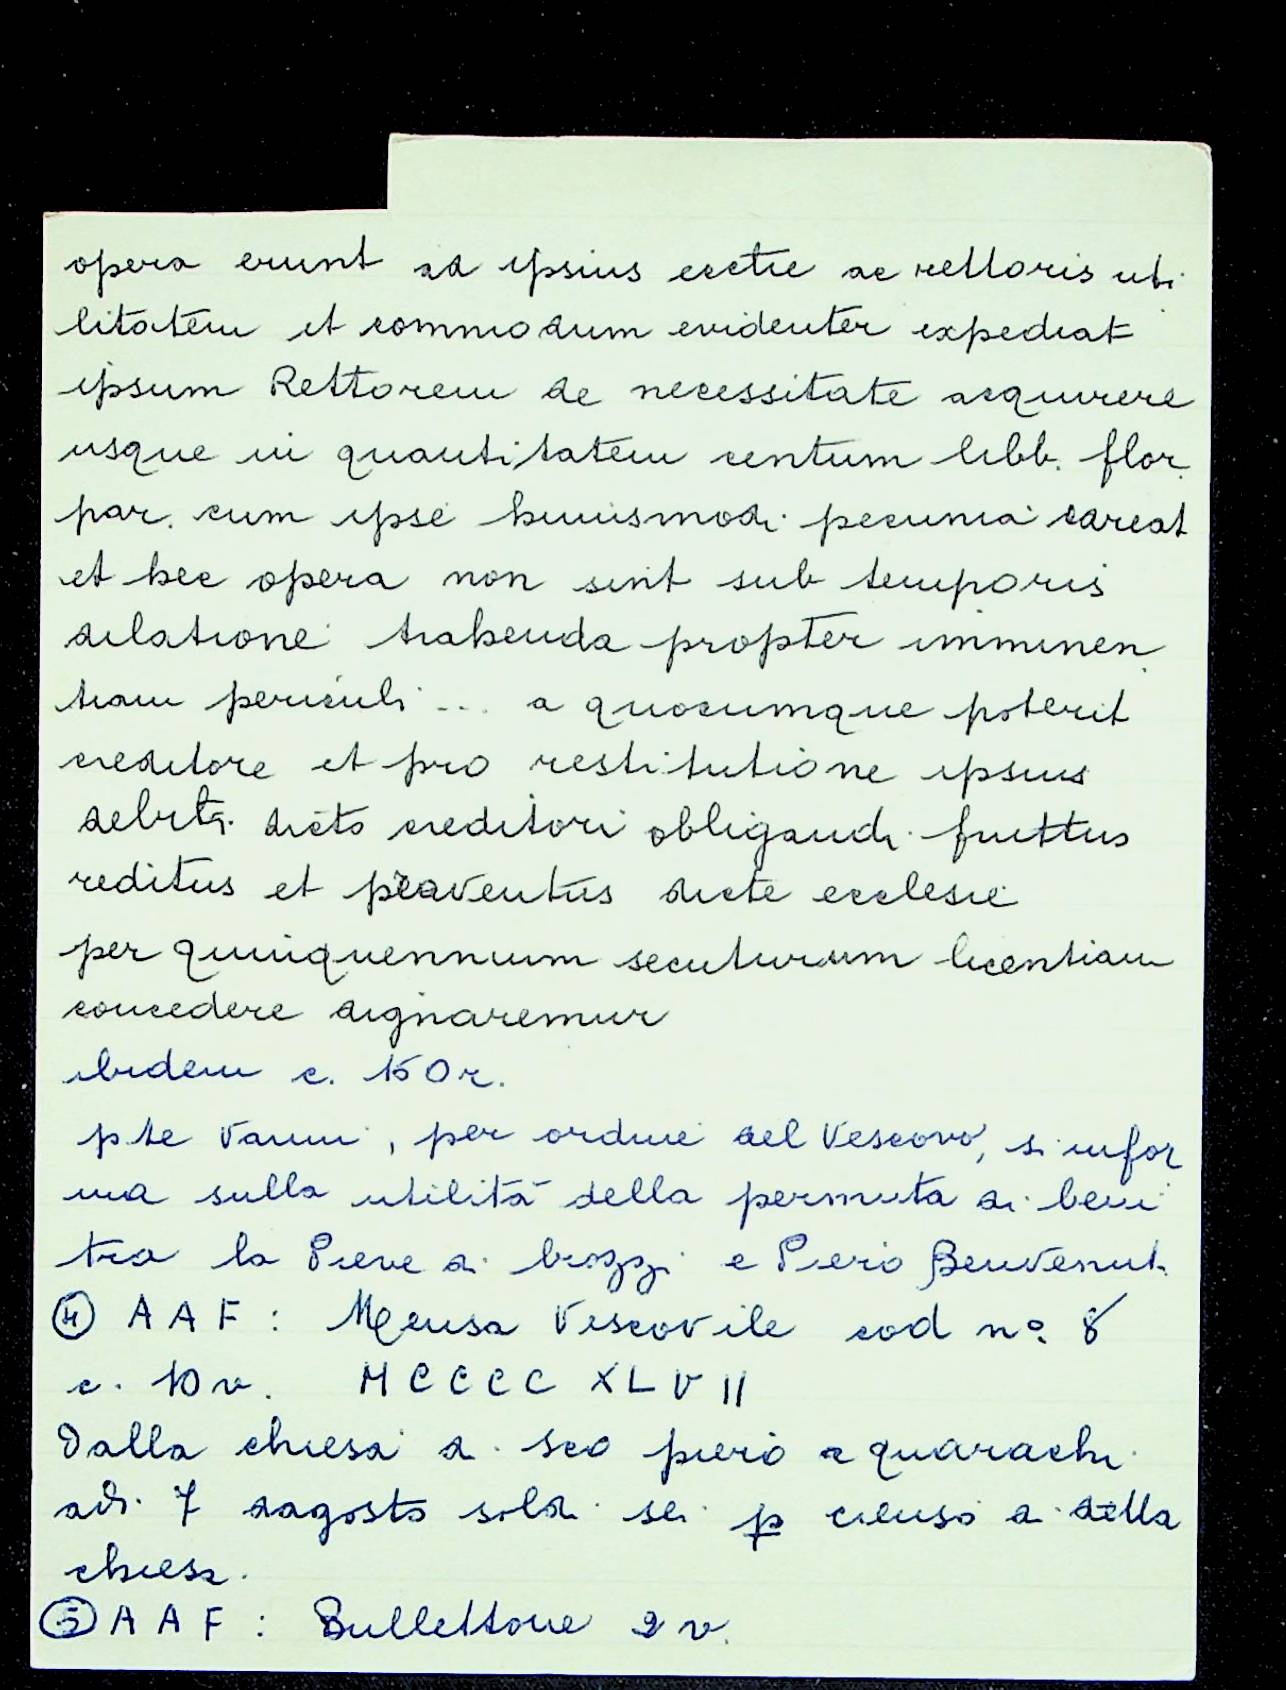 opera erunt ad ipsius ecctie ac rettoris uti
litatem et commodum evidenter expediat
ipsum Rettorem de necessitate acquirere
usque in quantitatem centum libb. flor.
par. cum ipse huiusmodi pecunia careat
et hec opera non sint sub temporis
dilatione trahenda propter imminen
tiam periculi ... a quocumque poterit
creditore et pro restitutione ipsius
debiti dicto creditori obligandi fruttus
reditus et proventus dicte ecclesie
per quinquennium secuturum licentiam
concedere dignaremur
ibidem c. 150 r.
pte Vanni, per ordine del Vescovo, si infor
ma sulla utilità della permuta di beni
tra la Pieve di brozzi e Piero Benvenuti
④ A A F : Mensa Vescovile cod nº. 8
c. 10 v. M C C C C X L V II
Dalla chiesa di sco piero a quarachi
adi 7 dagosto soldi sei p censo di detta
chiesa.
⑤ A A F : Bullettone 2 v.